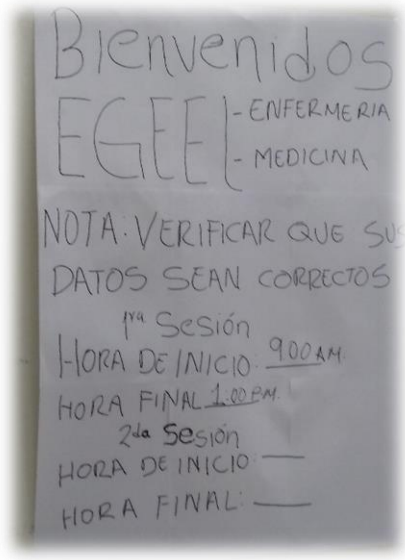 Bienvenidos
EGEEL - ENFERMERIA
- MEDICINA
NOTA: VERIFICAR QUE SUS
DATOS SEAN CORRECTOS
1ra Sesión
HORA DE INICIO: 9:00 AM.
HORA FINAL 1:00 P.M.
2da Sesión
HORA DE INICIO: ___
HORA FINAL: ___